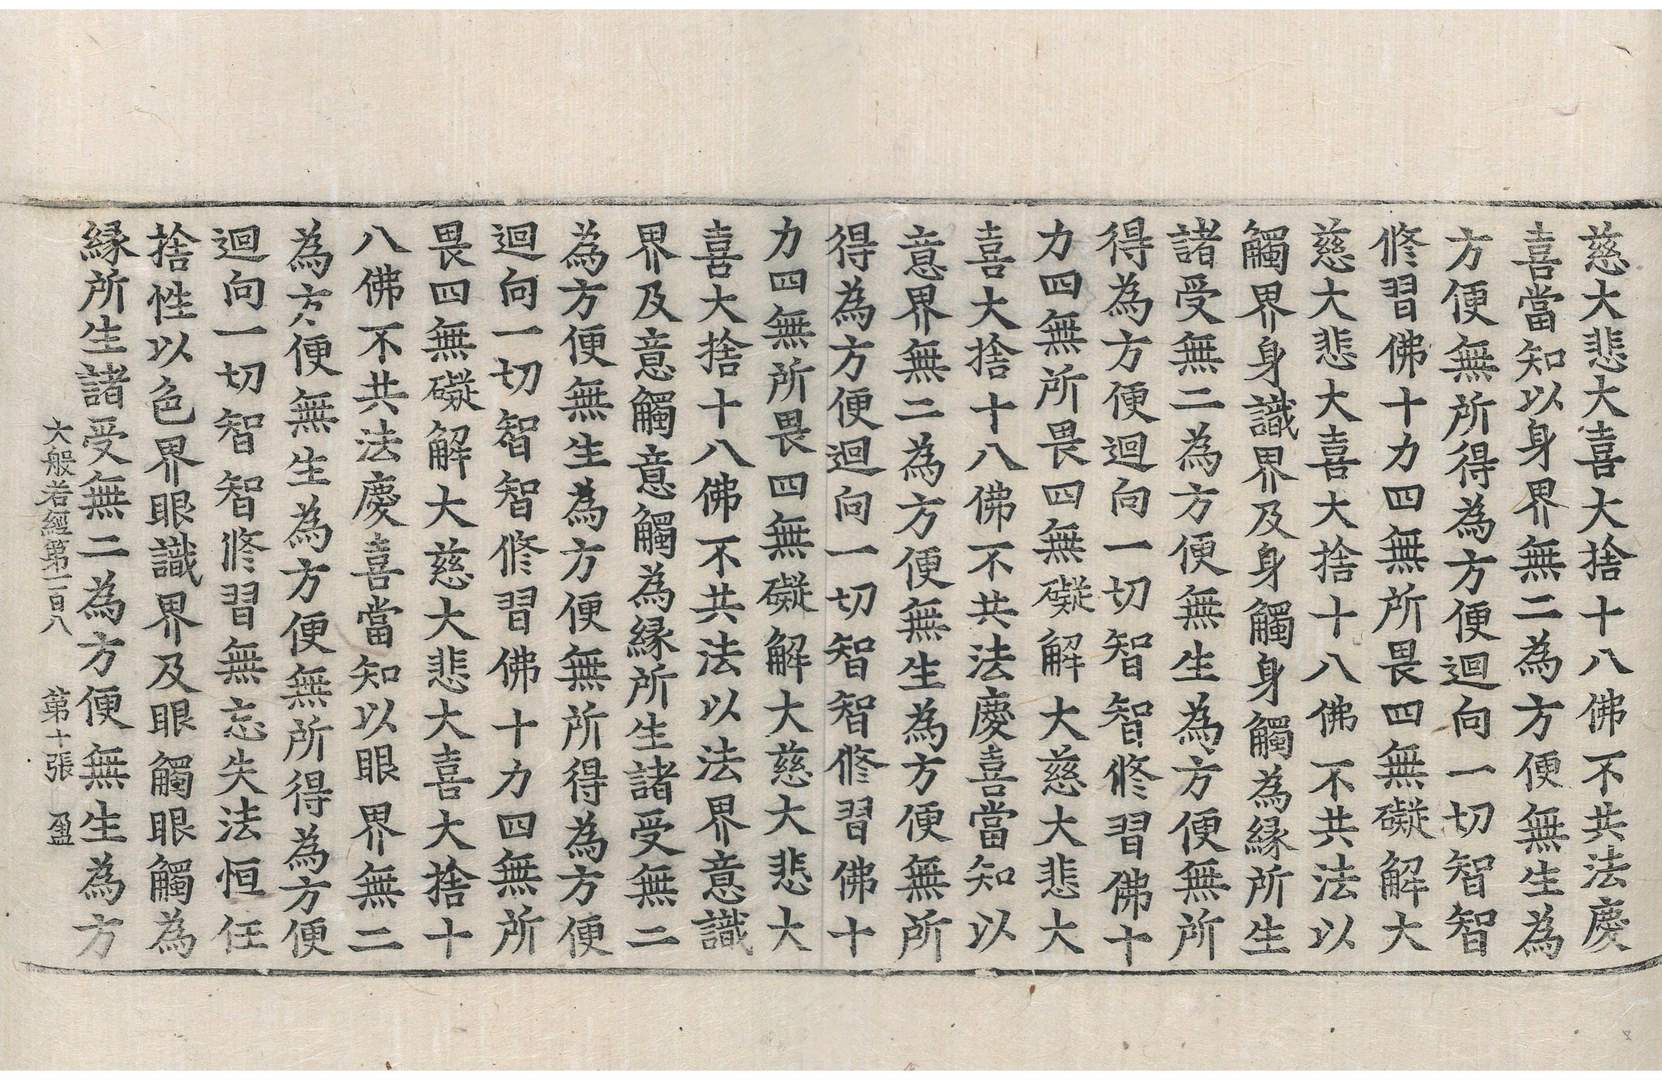 慈大悲大喜大捨十八佛不共法慶
喜當知以身界無二為方便無生為
方便無所得為方便迴向一切智智
修習佛十力四無所畏四無礙解大
慈大悲大喜大捨十八佛不共法以
觸界身識界及身觸身觸為緣所生
諸受無二為方便無生為方便無所
得為方便迴向一切智智修習佛十
力四無所畏四無礙解大慈大悲大
喜大捨十八佛不共法慶喜當知以
意界無二為方便無生為方便無所
得為方便迴向一切智智修習佛十
力四無所畏四無礙解大慈大悲大
喜大捨十八佛不共法以法界意識
界及意觸意觸為緣所生諸受無二
為方便無生為方便無所得為方便
迴向一切智智修習佛十力四無所
畏四無礙解大慈大悲大喜大捨十
八佛不共法慶喜當知以眼界無二
為方便無生為方便無所得為方便
迴向一切智智修習無忘失法恒住
捨性以色界眼識界及眼觸眼觸為
緣所生諸受無二為方便無生為方
大般若經第一百八 第十張 盈